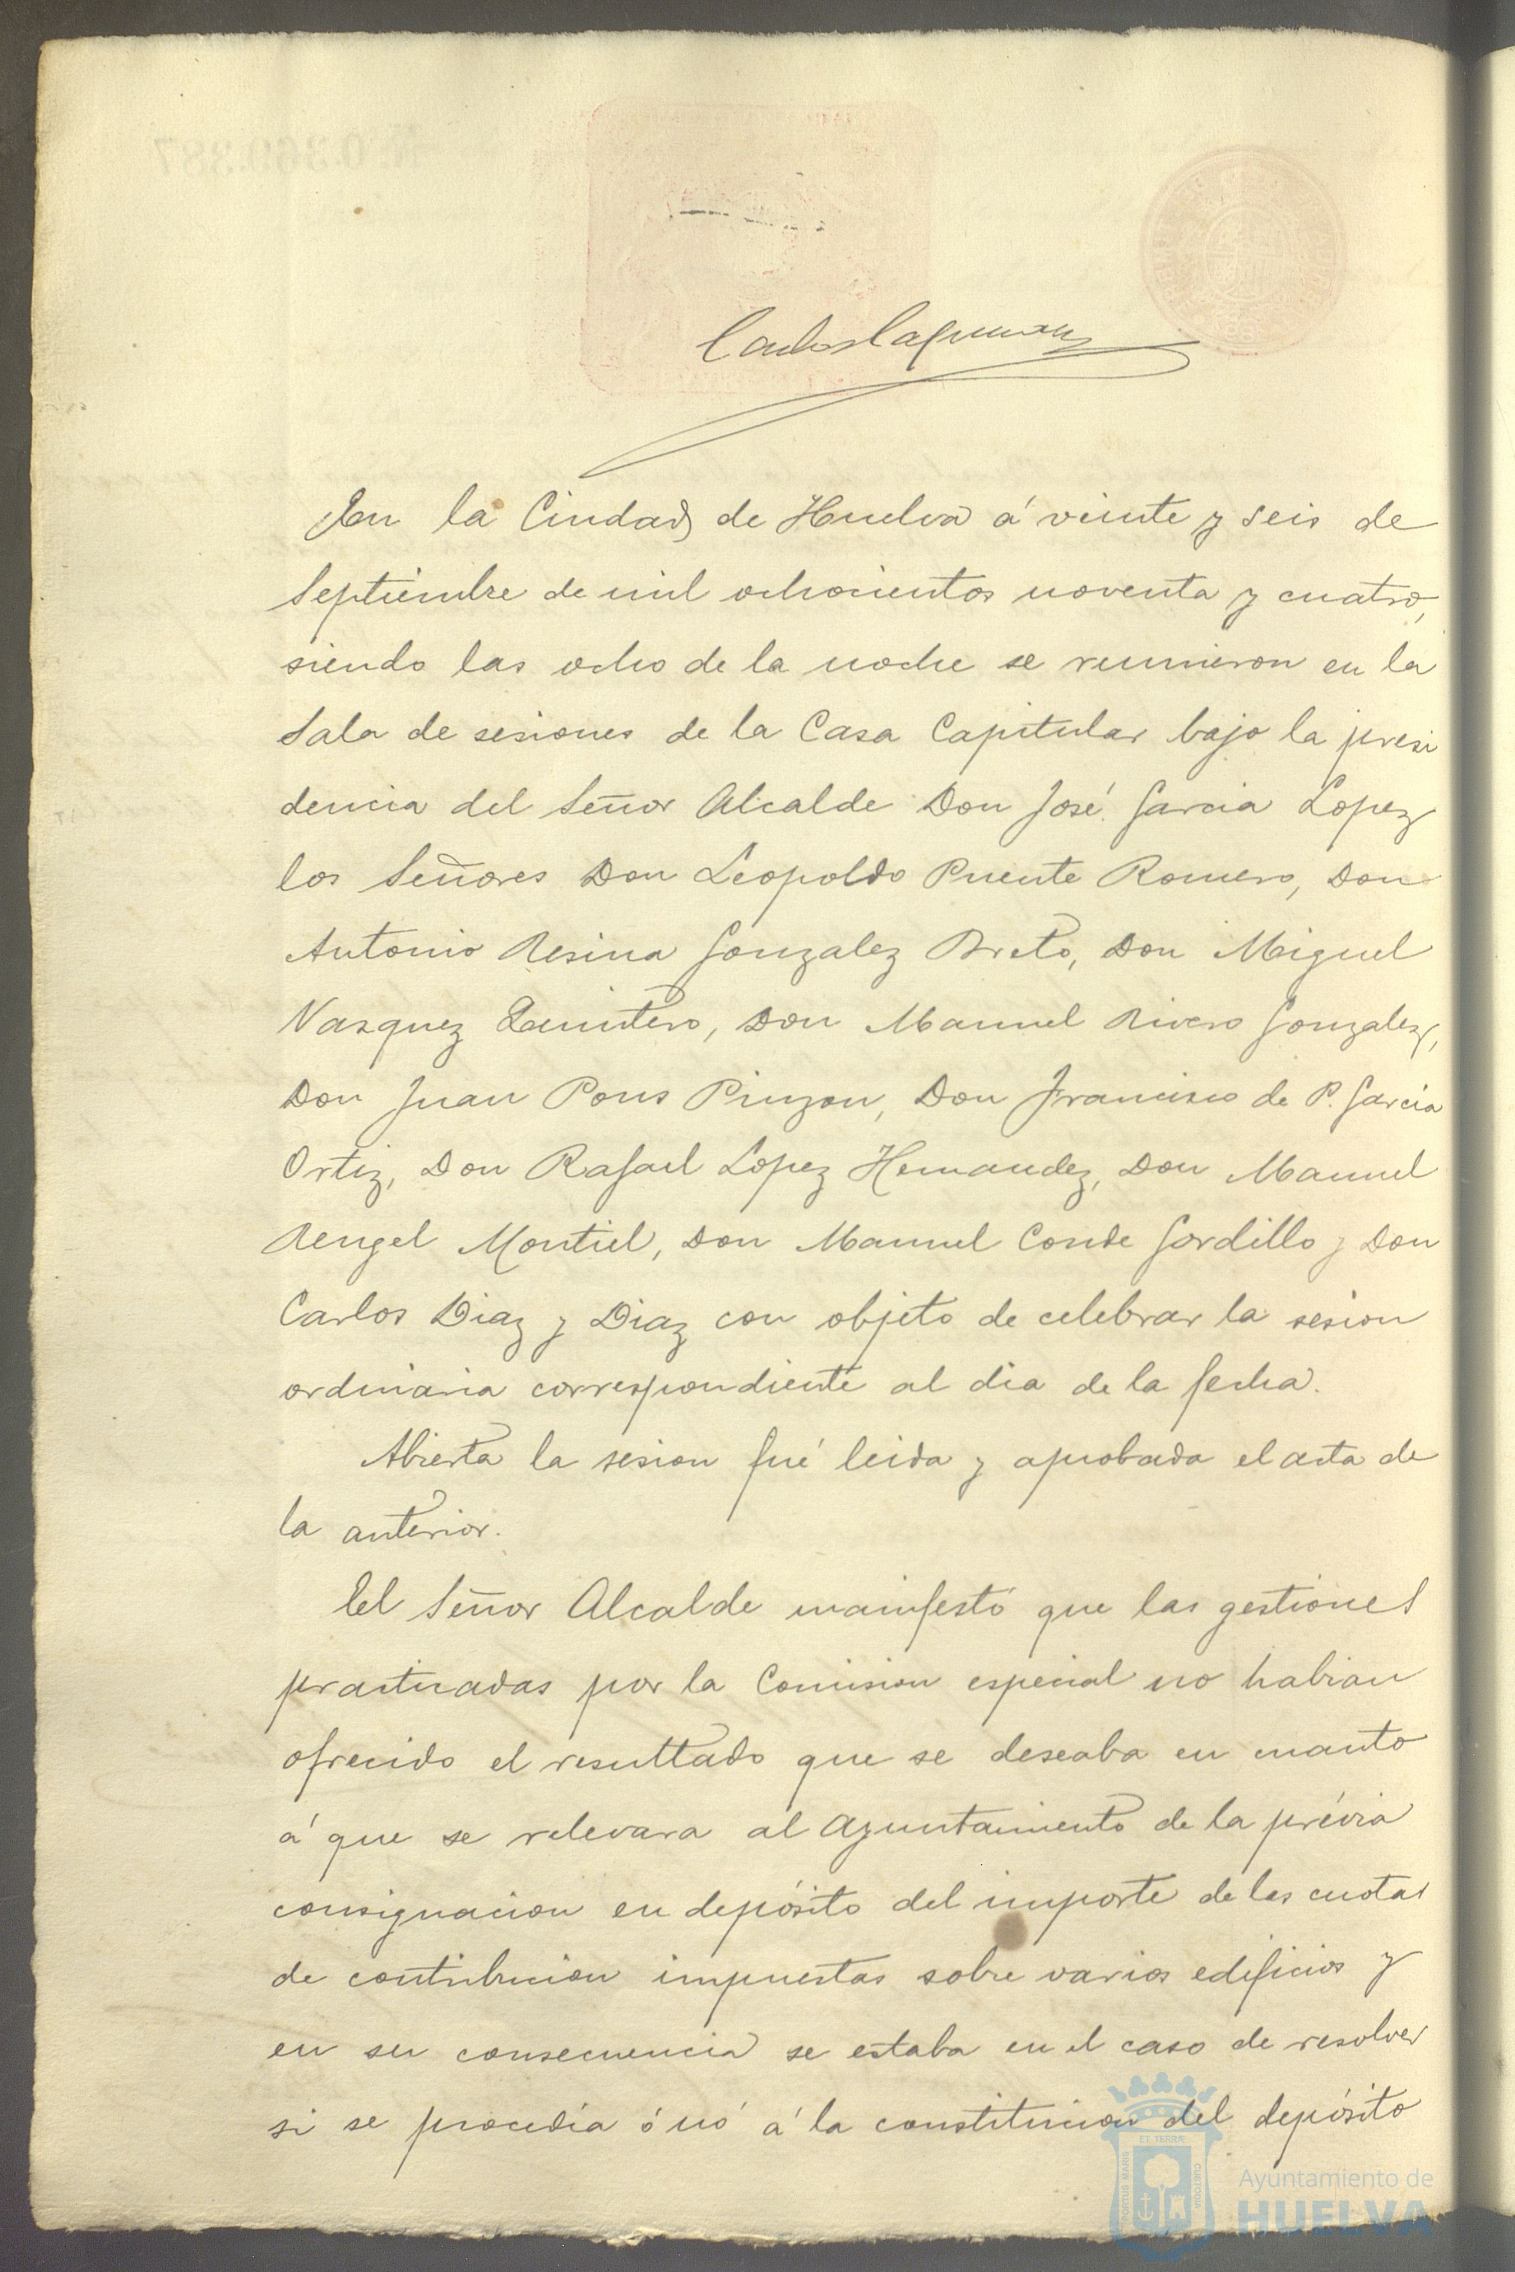 En la Ciudad de Huelva á veinte y seis de
Septiembre de mil ochocientos noventa y cuatro,
siendo las ocho de la noche se reunieron en la
Sala de sesiones de la Casa Capitular bajo la presi
dencia del Señor Alcalde Don José Garcia Lopez
los Señores Don Leopoldo Puente Romero, Don
Antonio Resina Gonzalez Breto, Don Miguel
Vazquez Quintero, Don Manuel Rivero Gonzalez,
Don Juan Pons Pinzon, Don Francisco de P. García
Ortiz, Don Rafael Lopez Hernandez, Don Manuel
Rengel Montiel, Don Manuel Conde Gordillo y Don
Carlos Diaz y Diaz con objeto de celebrar la sesion
ordinaria correspondiente al dia de la fecha.
Abierta la sesion fué leida y aprobada el acta de
la anterior.
El Señor Alcalde manifestó que las gestiones
practicadas por la Comision especial no habian
ofrecido el resultado que se deseaba en cuanto
á que se relevara al Ayuntamiento de la prévia
consignacion en depósito del importe de las cuotas
de contribucion impuestas sobre varios edificios y
en su consecuencia se estaba en el caso de resolver
si se procedía ó nó á la constitucion del depósito
Ayuntamiento de
HUELVA